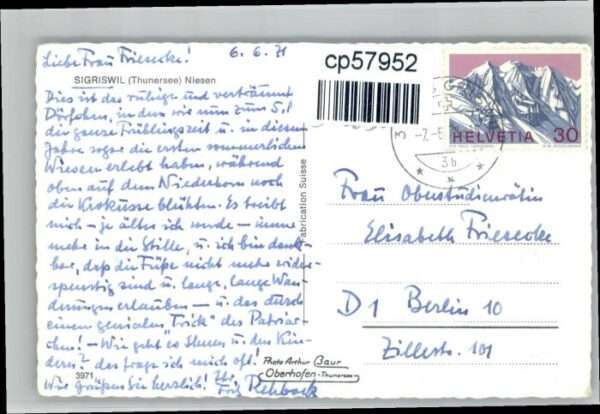 Liebe Frau Friesecke! 6.6.71
SIGRISWIL (Thunersee) Niesen
Dies ist das ruhige und verträumte
Dörfchen, in dem wir nun zum 5.
die ganze Frühlingszeit u. in diesem
Jahre sogar die ersten sommerlichen
Wiesen erlebt haben, während
oben auf dem Niederhorn noch
die Krokusse blühten. Es treibt
mich – je älter ich werde – immer
mehr in die Stille, u. ich bin dank-
bar, daß die Füße nicht mehr wider-
spenstig sind u. lange, lange Wan-
derungen erlauben – u. das durch
einen genialen „Trick" des Patriar-
chen! – Wie geht es Ihnen u. den Kin-
dern? das frage ich mich oft!
Wir grüßen Sie herzlich! Ihr
Fritz Rehbock
3971
Photo Arthur Baur
Oberhofen-Thunersee
Fabrication Suisse
cp57952
HELVETIA 30
3b
Frau Oberstudienrätin
Elisabeth Friesecke
D 1 Berlin 10
Zillestr. 101